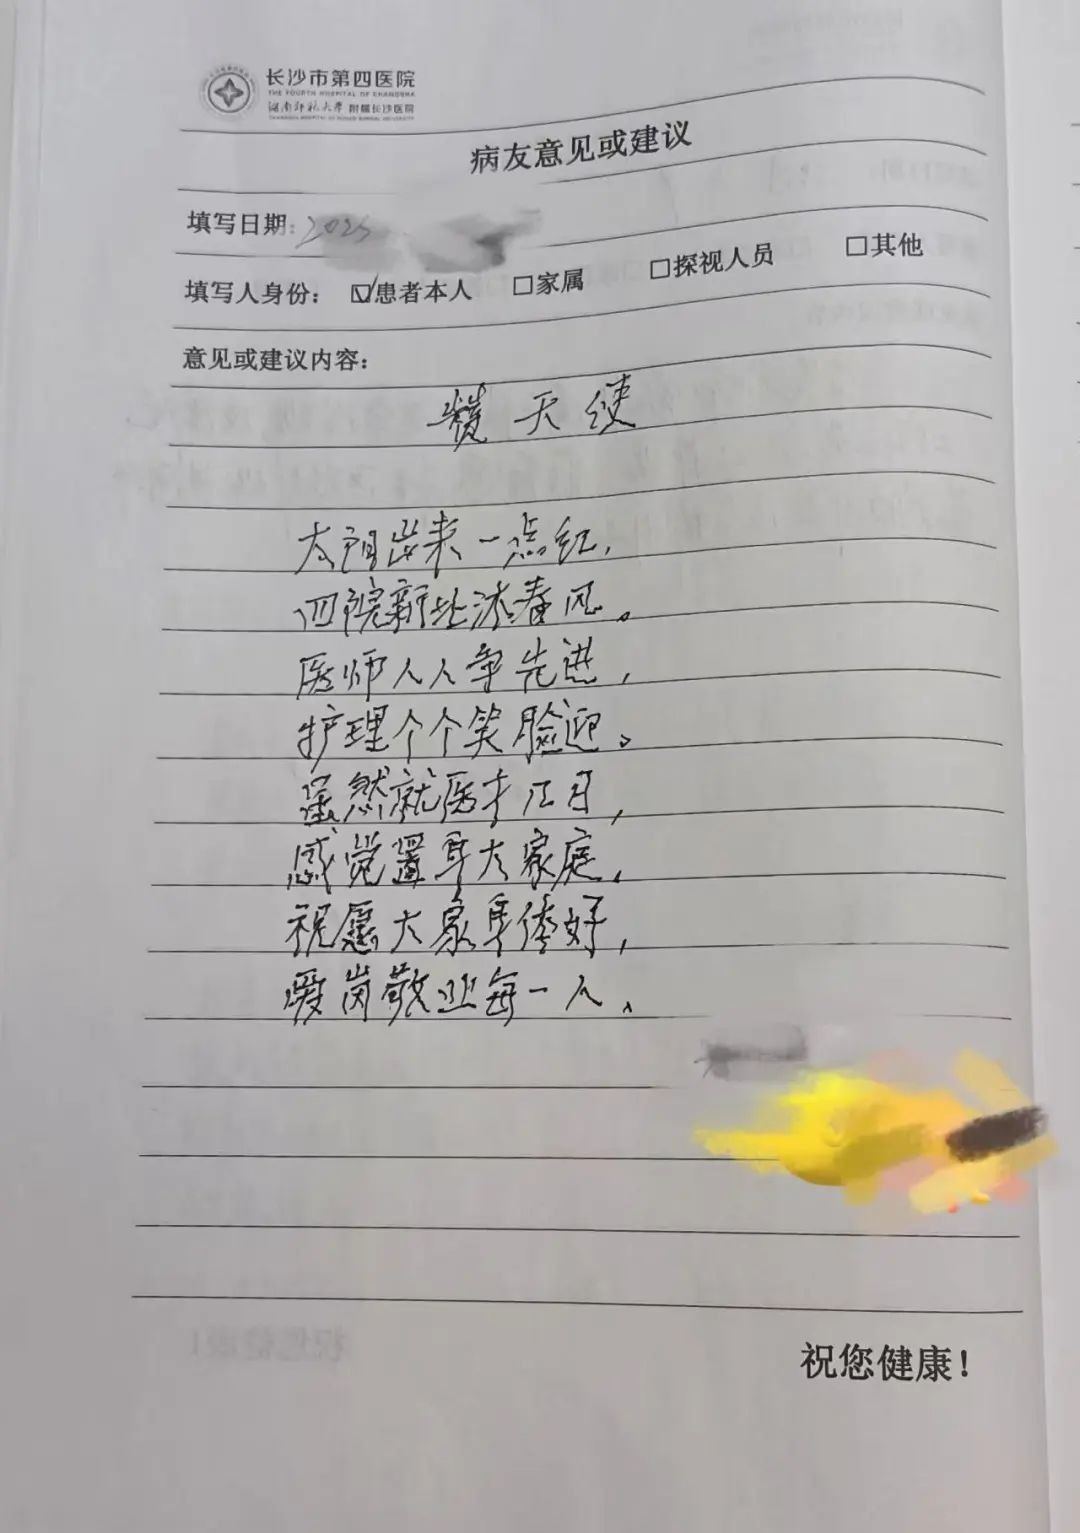 长沙市第四医院
THE FOURTH HOSPITAL OF CHANGSHA
湖南师范大学 附属长沙医院
病友意见或建议
填写日期: 2025
填写人身份: ☑患者本人 □家属 □探视人员 □其他
意见或建议内容:
赞天使
太阳出来一点红,
四院新址沐春风。
医师人人争先进,
护理个个笑脸迎。
虽然就医才几日,
感觉置身大家庭,
祝愿大家身体好,
爱岗敬业每一人、
祝您健康!